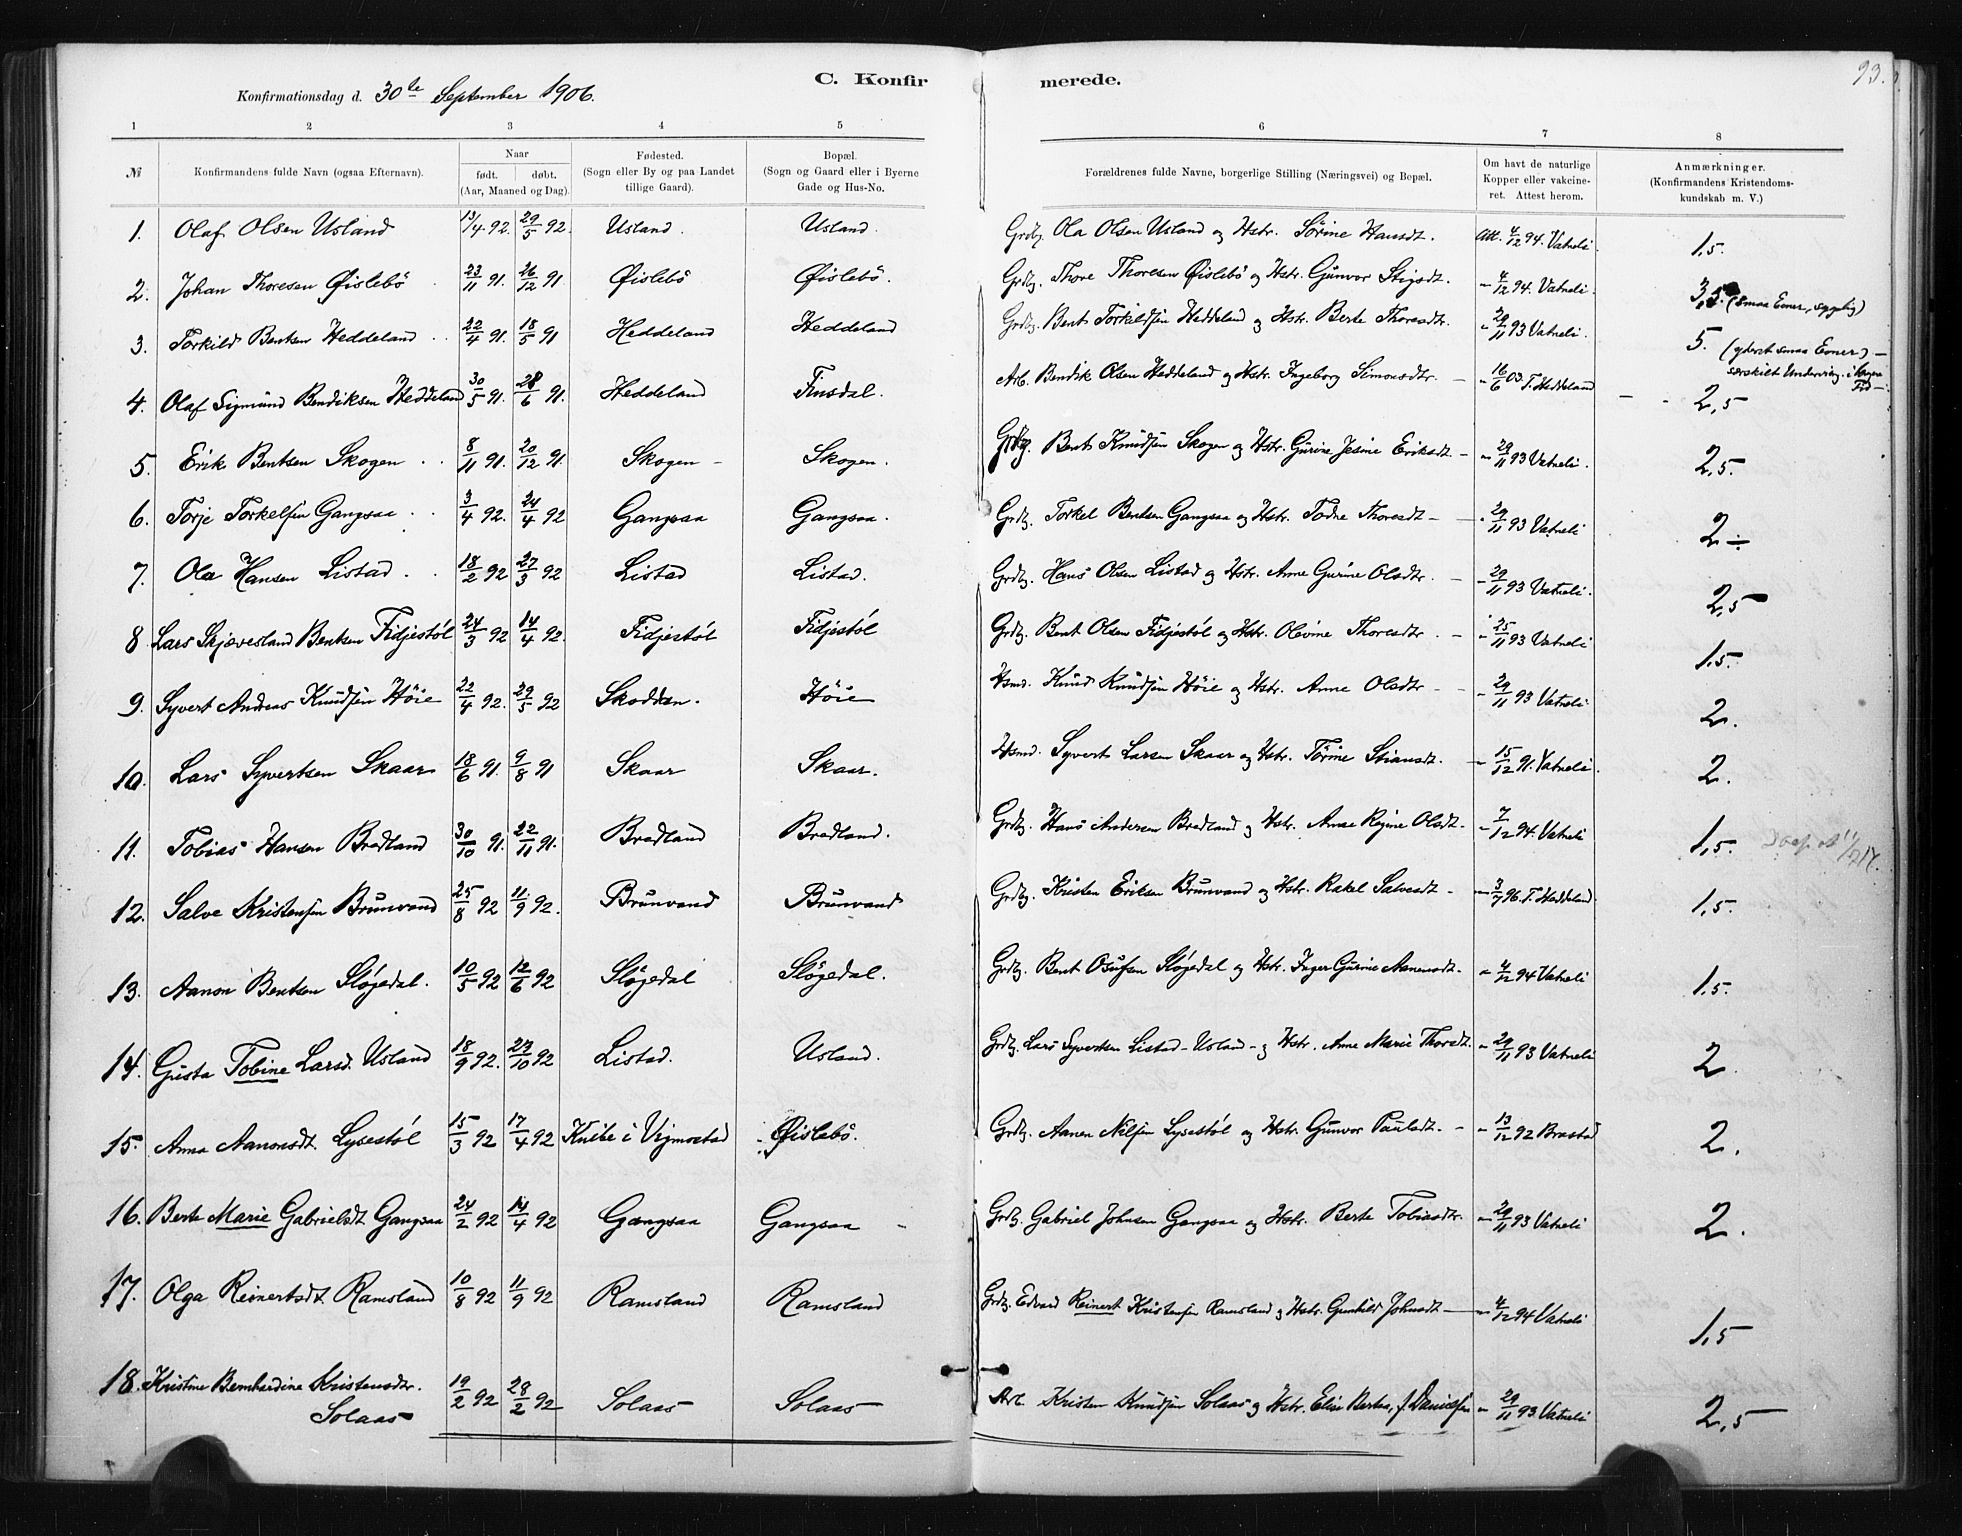 93.
C. Konfir merede.
Konfirmationsdag d. 30te September 1906.
1 2 3 4 5 6 7 8
№ Konfirmandens fulde Navn (ogsaa Efternavn). Naar født. døbt. (Aar, Maaned og Dag). Fødested. (Sogn eller By og paa Landet tillige Gaard). Bopæl. (Sogn og Gaard eller i Byerne Gade og Hus-No. Forældrenes fulde Navne, borgerlige Stilling (Næringsvei) og Bopæl. Om havt de naturlige Kopper eller vakcineret. Attest herom. Anmærkninger. (Konfirmandens Kristendomskundskab m. V.)
1. Olaf Olsen Usland 13/4 92. 29/5 92. Usland. Usland. Grdb. Ola Olsen Usland og Hstr. Sörine Hansdt. Att. 4/12 94. Vatneli. 1,5.
2. Johan Thoresen Øislebö 23/11 91. 26/12 91. Øislebö Øislebö. Grdb. Thore Thoresen Øislebö og Hstr. Gunvor Stigsdt. - 4/12 94. Vatneli. 3,5. (smaa Evner, sygelig)
3. Torkild Bentsen Heddeland 22/4 91. 18/5 91 Heddeland Heddeland Grdb. Bent Torkildsen Heddeland og Hstr. Berte Thoresdtr. - 29/11 93 Vatneli. 5. (yderst smaa Evner) - særskilt Undervisng. i længre Tid -
4. Olaf Sigmund Bendiksen Heddeland 30/5 91. 28/6 91. Heddeland Finsdal. Arb. Bendik Olsen Heddeland og Hstr. Ingeborg Simonsdtr. - - 16/6 03. T. Heddeland - - 2,5
5. Erik Bentsen Skogen 8/11 91. 20/12 91. Skogen - Skogen. Grdb. Bent Knudsen Skogen og Hstr. Gurine Jesine Eriksdt. - - 29/11 93 Vatneli. 2,5.
6. Torje Torkelsen Gangsaa 3/4 92. 24/4 92 Gangsaa Gangsaa. Grdb. Torkel Bentsen Gangsaa og Hstr. Todne Thoresdt - - 29/11 93 Vatneli 2 ÷
7. Ola Hansen Listad 18/2 92 27/3 92 Listad Listad. Grdb. Hans Olsen Listad og Hstr. Anne Gurine Olsdtr. - - 29/11 93 Vatneli. 2,5
8 Lars Skjævesland Bentsen Fidjestöl 24/3 92 14/4 92. Fidjestöl Fidjestöl Grdb. Bent Olsen Fidjestöl og Hstr. Olevine Thoresdtr. - - 25/11 93 Vatneli 1,5.
9. Syvert Andreas Knudsen Höie 22/4 92. 29/5 92 Skodden. Höie Hsmd. Knud Knudsen Höie og Hstr. Anne Olsdtr - - 29/11 93 Vatneli 2.
10. Lars Syvertsen Skaar 18/6 91. 9/8 91 Skaar Skaar. Hsmd. Syvert Larsen Skaar og Hstr. Törine Stiansdt. - 15/12 91. Vatneli. 2.
11. Tobias Hansen Bredland 30/10 91. 22/11 91. Bredland Bredland. Grdb. Hans Andersen Bredland og Hstr. Anne Regine Olsdt. - 7/12 94. Vatneli 1,5.
12. Salve Kristensen Brunvand 25/8 92 11/9 92. Brunvand Brunvand Grdb. Kristen Eriksen Brunvand og Hstr. Rakel Salvesdt - - 3/7 96. T. Heddeland. 1,5.
13. Aanon Bentsen Slögedal. 10/5 92 12/6 92 Slögedal Slögedal. Grdb. Bent Osufsen Slögedal og Hstr. Inger Gurine Aanensdt. - 4/12 94 Vatneli 1,5.
14. Gusta Tobine Larsd. Usland 18/9 92. 23/10 92 Listad. Usland. Grdb. Lars Syvertsen Listad - Usland - og Hstr. Anne Marie Thorsdt. - 29/11 93 Vatneli 2
15. Anna Aanonsdt. Lysestöl 15/3 92 17/4 92 Knibe i Vigmostad Øislebö. Grdb. Aanen Nilsen Lysestöl og Hstr. Gunvor Paulsdt. - - 13/12 92 Brastad 2.
16. Berte Marie Gabrielsdt Gangsaa 24/2 92 14/4 92 Gangsaa Gangsaa Grdb. Gabriel Johnsen Gangsaa og Hstr. Berte Tobiasdtr. - 29/11 93 Vatneli 2.
17. Olga Reinertsdt Ramsland 10/8 92 11/9 92 Ramsland Ramsland Grdb. Edvard Reinert Kristensen Ramsland og Hstr. Gunhild Johnsdt - - 4/12 94 Vatneli 1,5
18. Kristine Bernhardine Kristensdtr. 19/2 92 28/2 92 Solaas Solaas Arb. Kristen Knudsen Solaas og Hstr. Elise Bertea, f. Danielsen - 29/11 93 Vatneli 2,5
Solaas